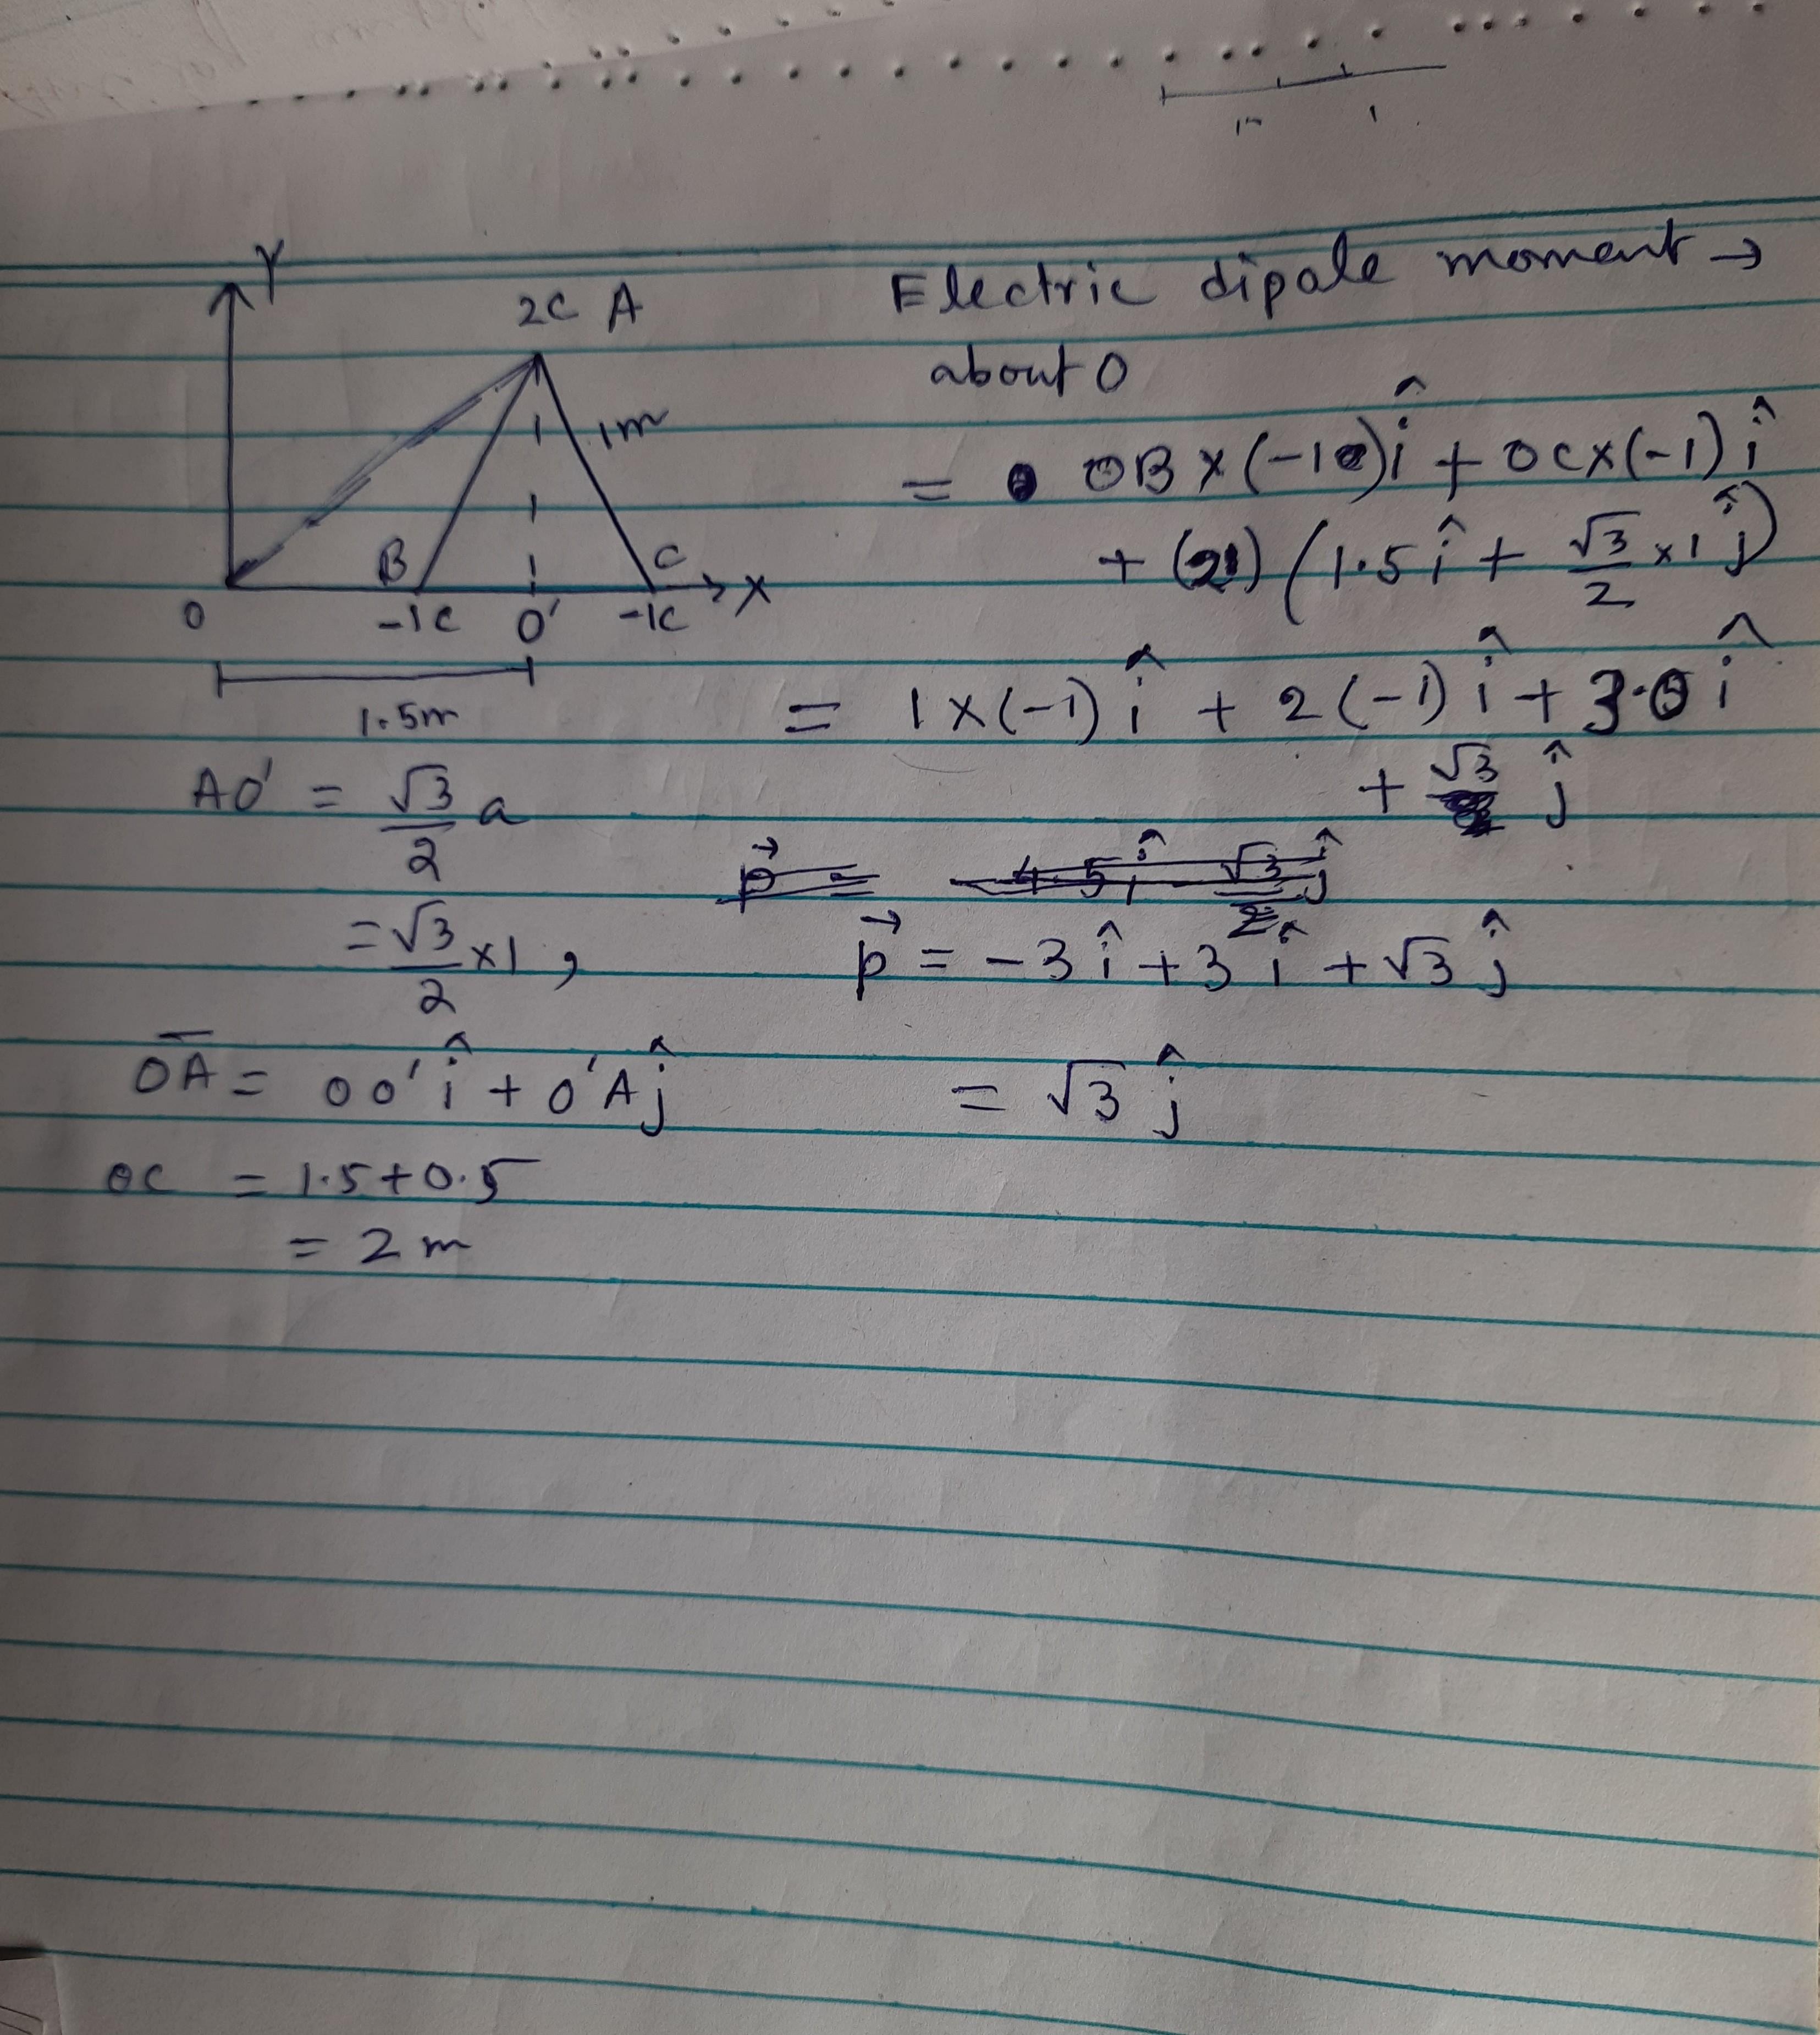 1m 1
Y
2C A
1m
B C
O -1C O' -1C X
1.5m
AO' = √3/2 a
= √3/2 ×1,
OA = OO' î + O'A ĵ
OC = 1.5+0.5
= 2 m
Electric dipole moment →
about O
= OB × (-1)î + OC×(-1) î
+ (2) (1.5 î + √3/2 ×1 ĵ)
= 1×(-1) î + 2(-1) î + 3.0 î
+ √3 ĵ
p⃗ = -3 î + 3 î + √3 ĵ
= √3 ĵ